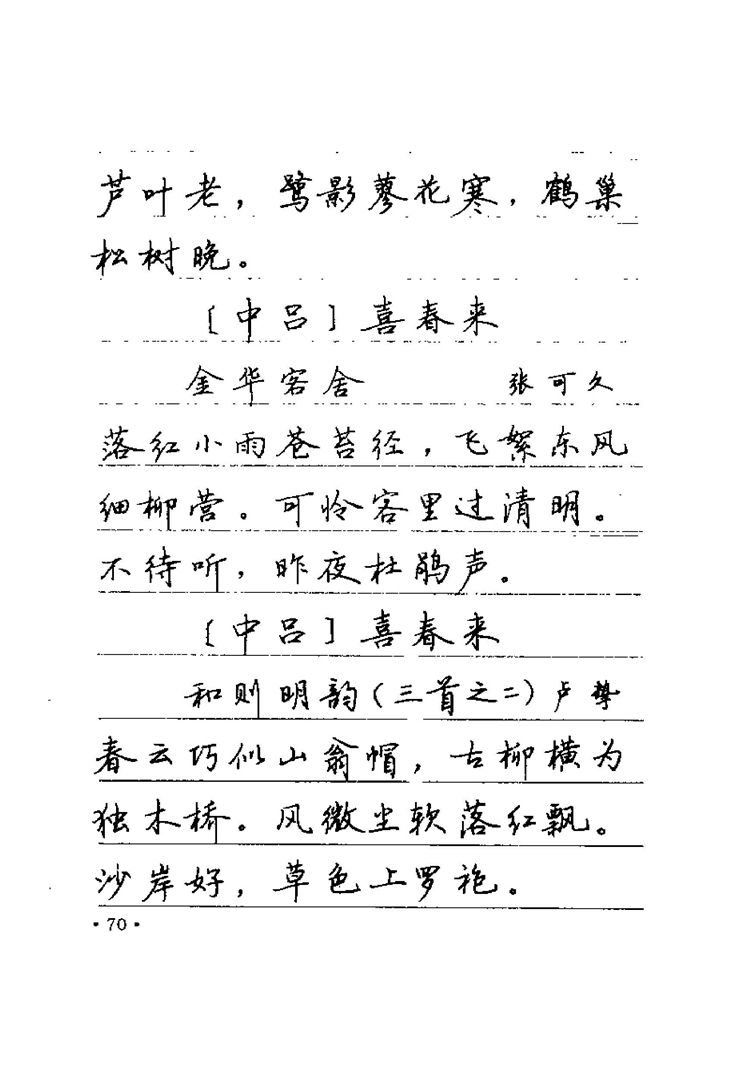 芦叶老，鹭影蓼花寒，鹤巢
松树晚。
［中吕］喜春来
金华客舍 张可久
落红小雨苍苔径，飞絮东风
细柳营。可怜客里过清明。
不待听，昨夜杜鹃声。
［中吕］喜春来
和则明韵（三首之二）卢挚
春云巧似山翁帽，古柳横为
独木桥。风微尘软落红飘。
沙岸好，草色上罗袍。
·70·